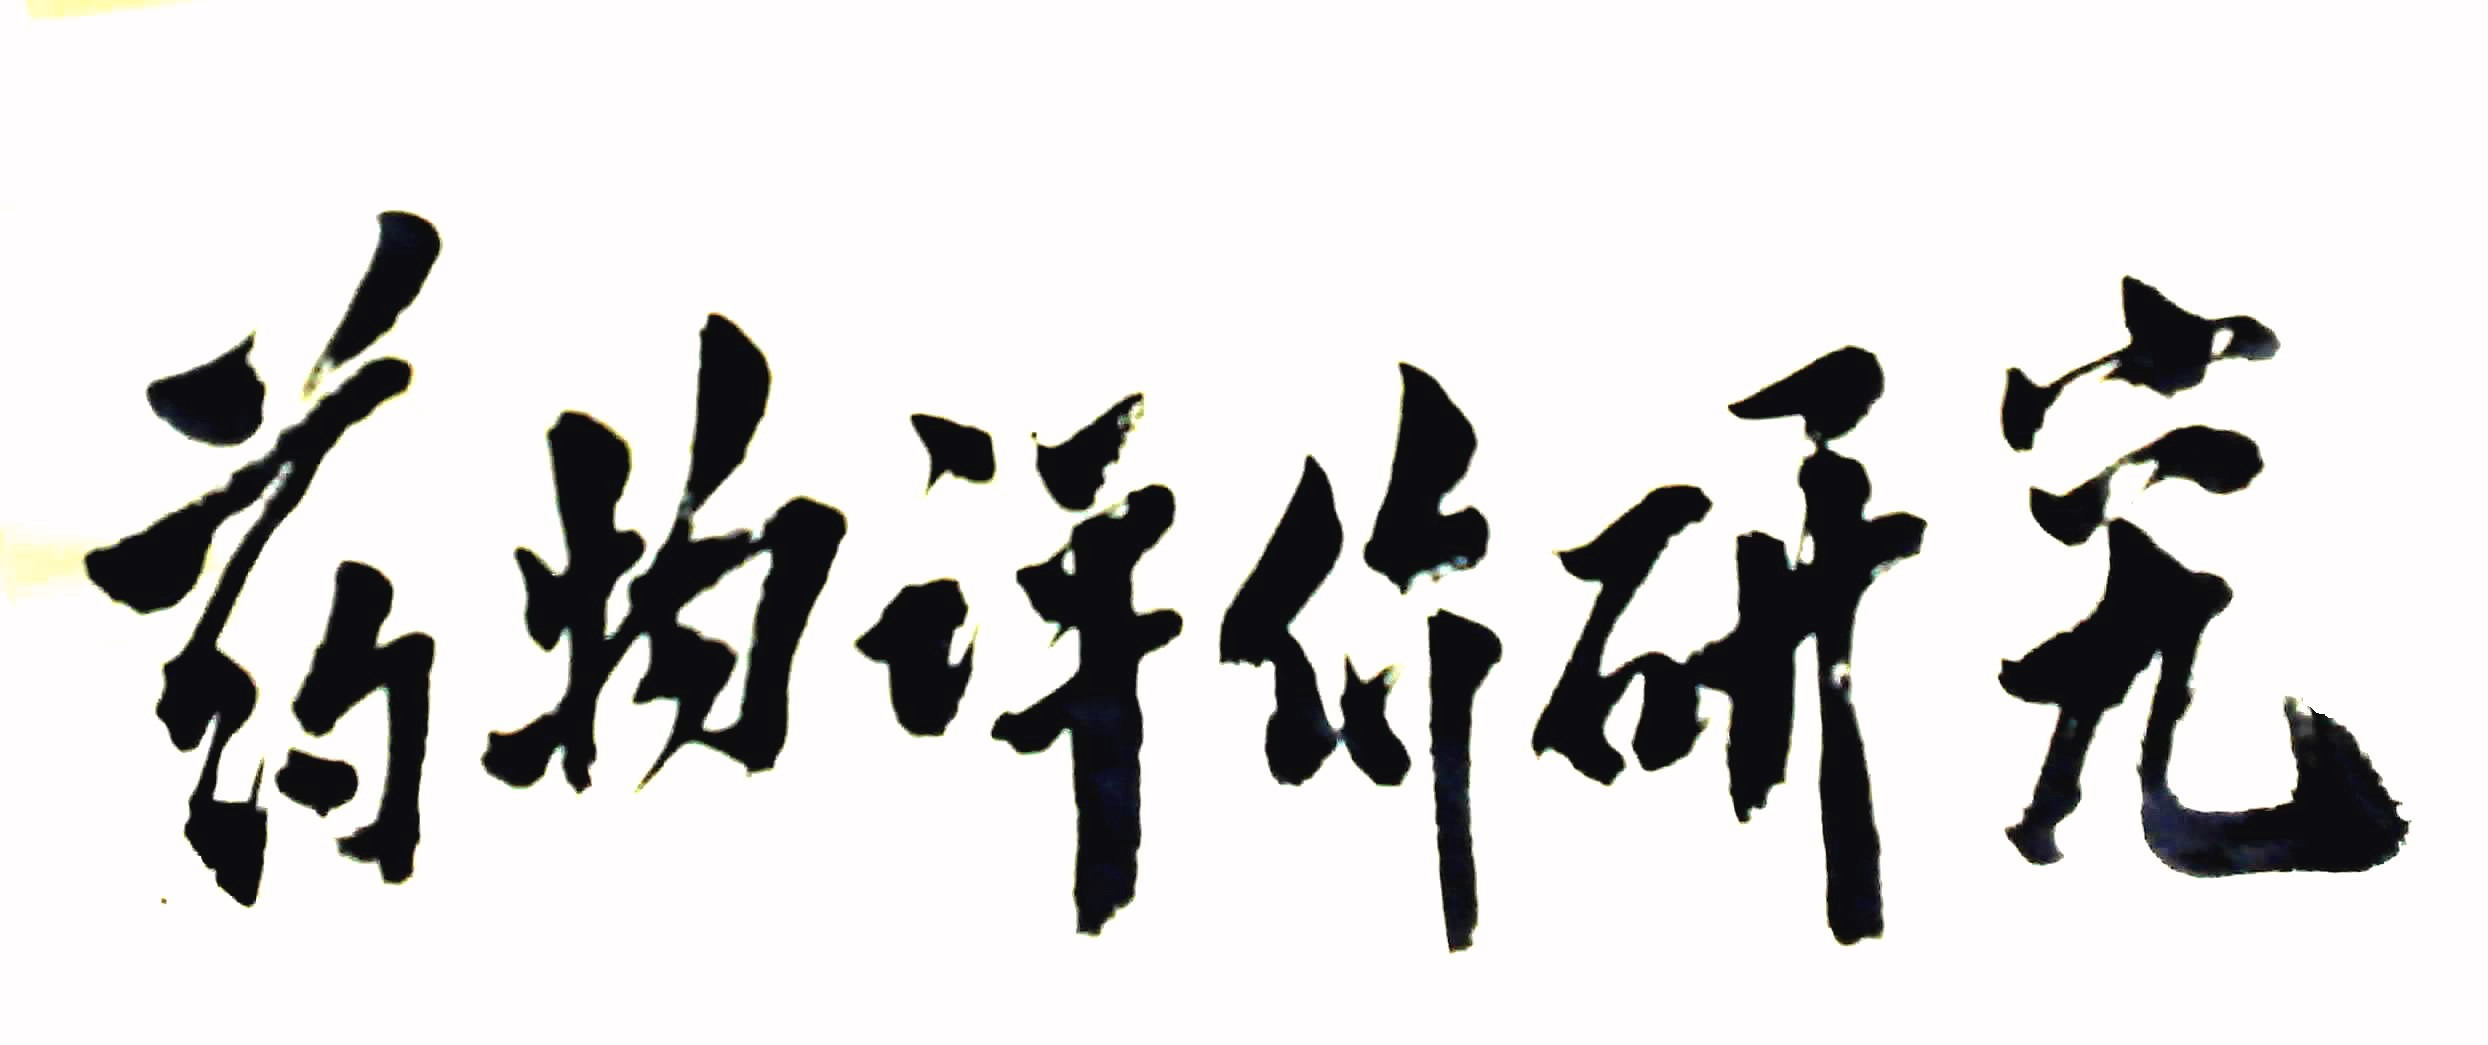 药物评价研究